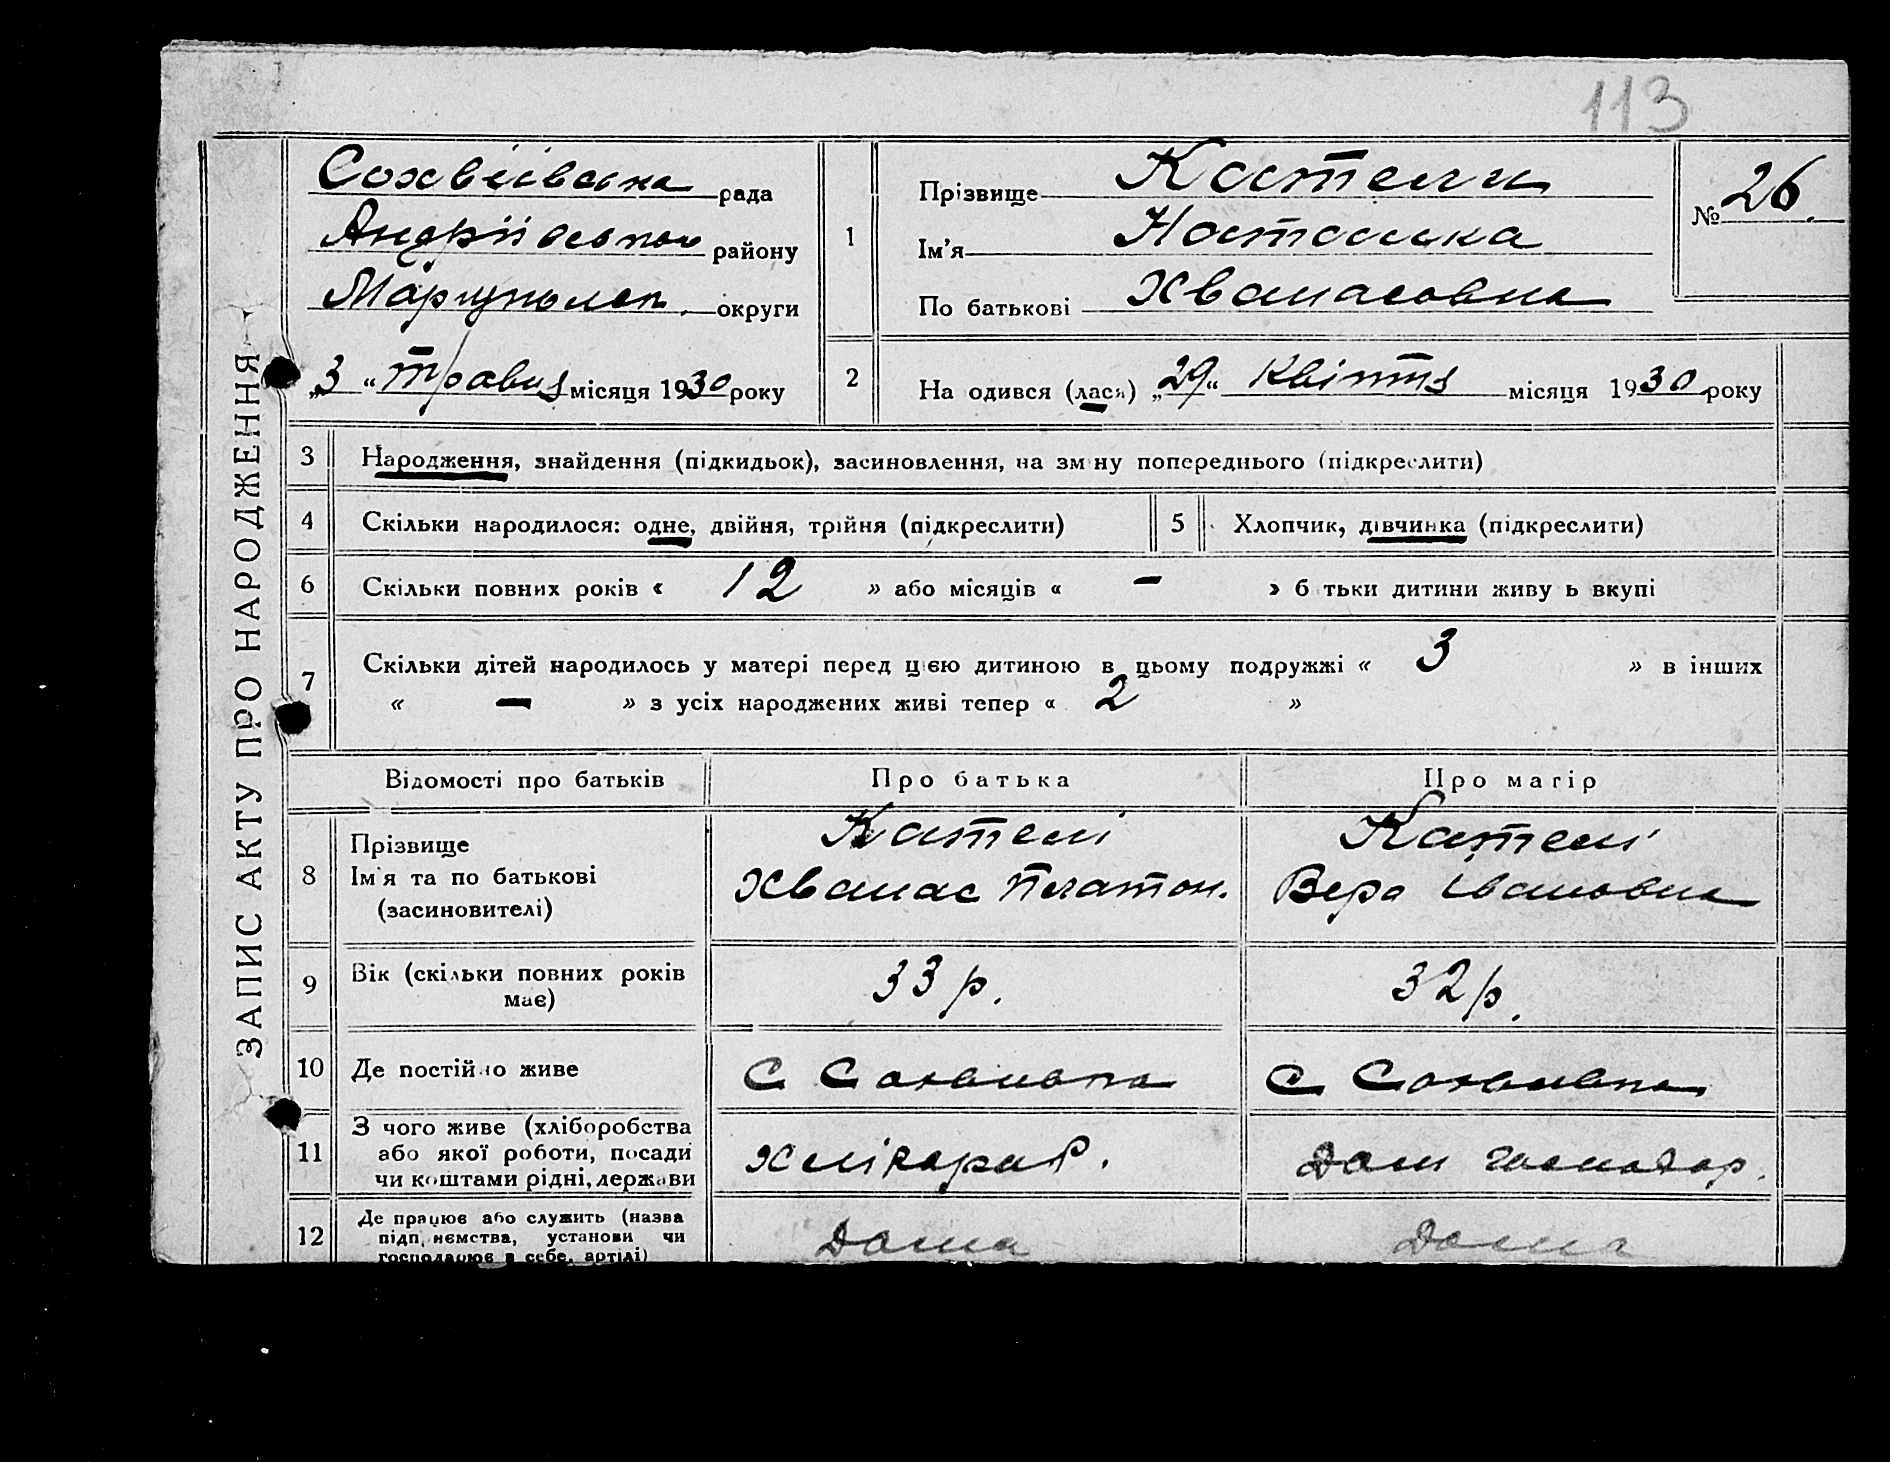 113
Сохвіївська рада
Андріївського району
Маріупольск. округи
„3“ травня місяця 1930 року
1
Прізвище Кателли
Ім’я Настаська
По батькові Хванасовна
№ 26.
2
На одився (лася) „29“ Квітня місяця 1930 року
ЗАПИС АКТУ ПРО НАРОДЖЕННЯ
3 Народження, знайдення (підкидьок), засиновлення, на зм ну попереднього (підкреслити)
4 Скільки народилося: одне, двійня, трійня (підкреслити) 5 Хлопчик, дівчинка (підкреслити)
6 Скільки повних років « 12 » або місяців « – » б тьки дитини живу ь вкупі
7 Скільки дітей народилось у матері перед цією дитиною в цьому подружжі « 3 » в інших
« – » з усіх народжених живі тепер « 2 »
Відомості про батьків Про батька Про матір
8 Прізвище Кателі Кателі
Ім’я та по батькові Хванас Платон. Вера Івановна
(засиновителі)
9 Вік (скільки повних років має) 33 р. 32 р.
10 Де постійно живе С С
11 З чого живе (хліборобства
або якої роботи, посади
чи коштами рідні, держави
Дом господар.
12 Де працює або служить (назва
підп. ємства, установи чи
господарює в себе, артілі)
Дома Дома